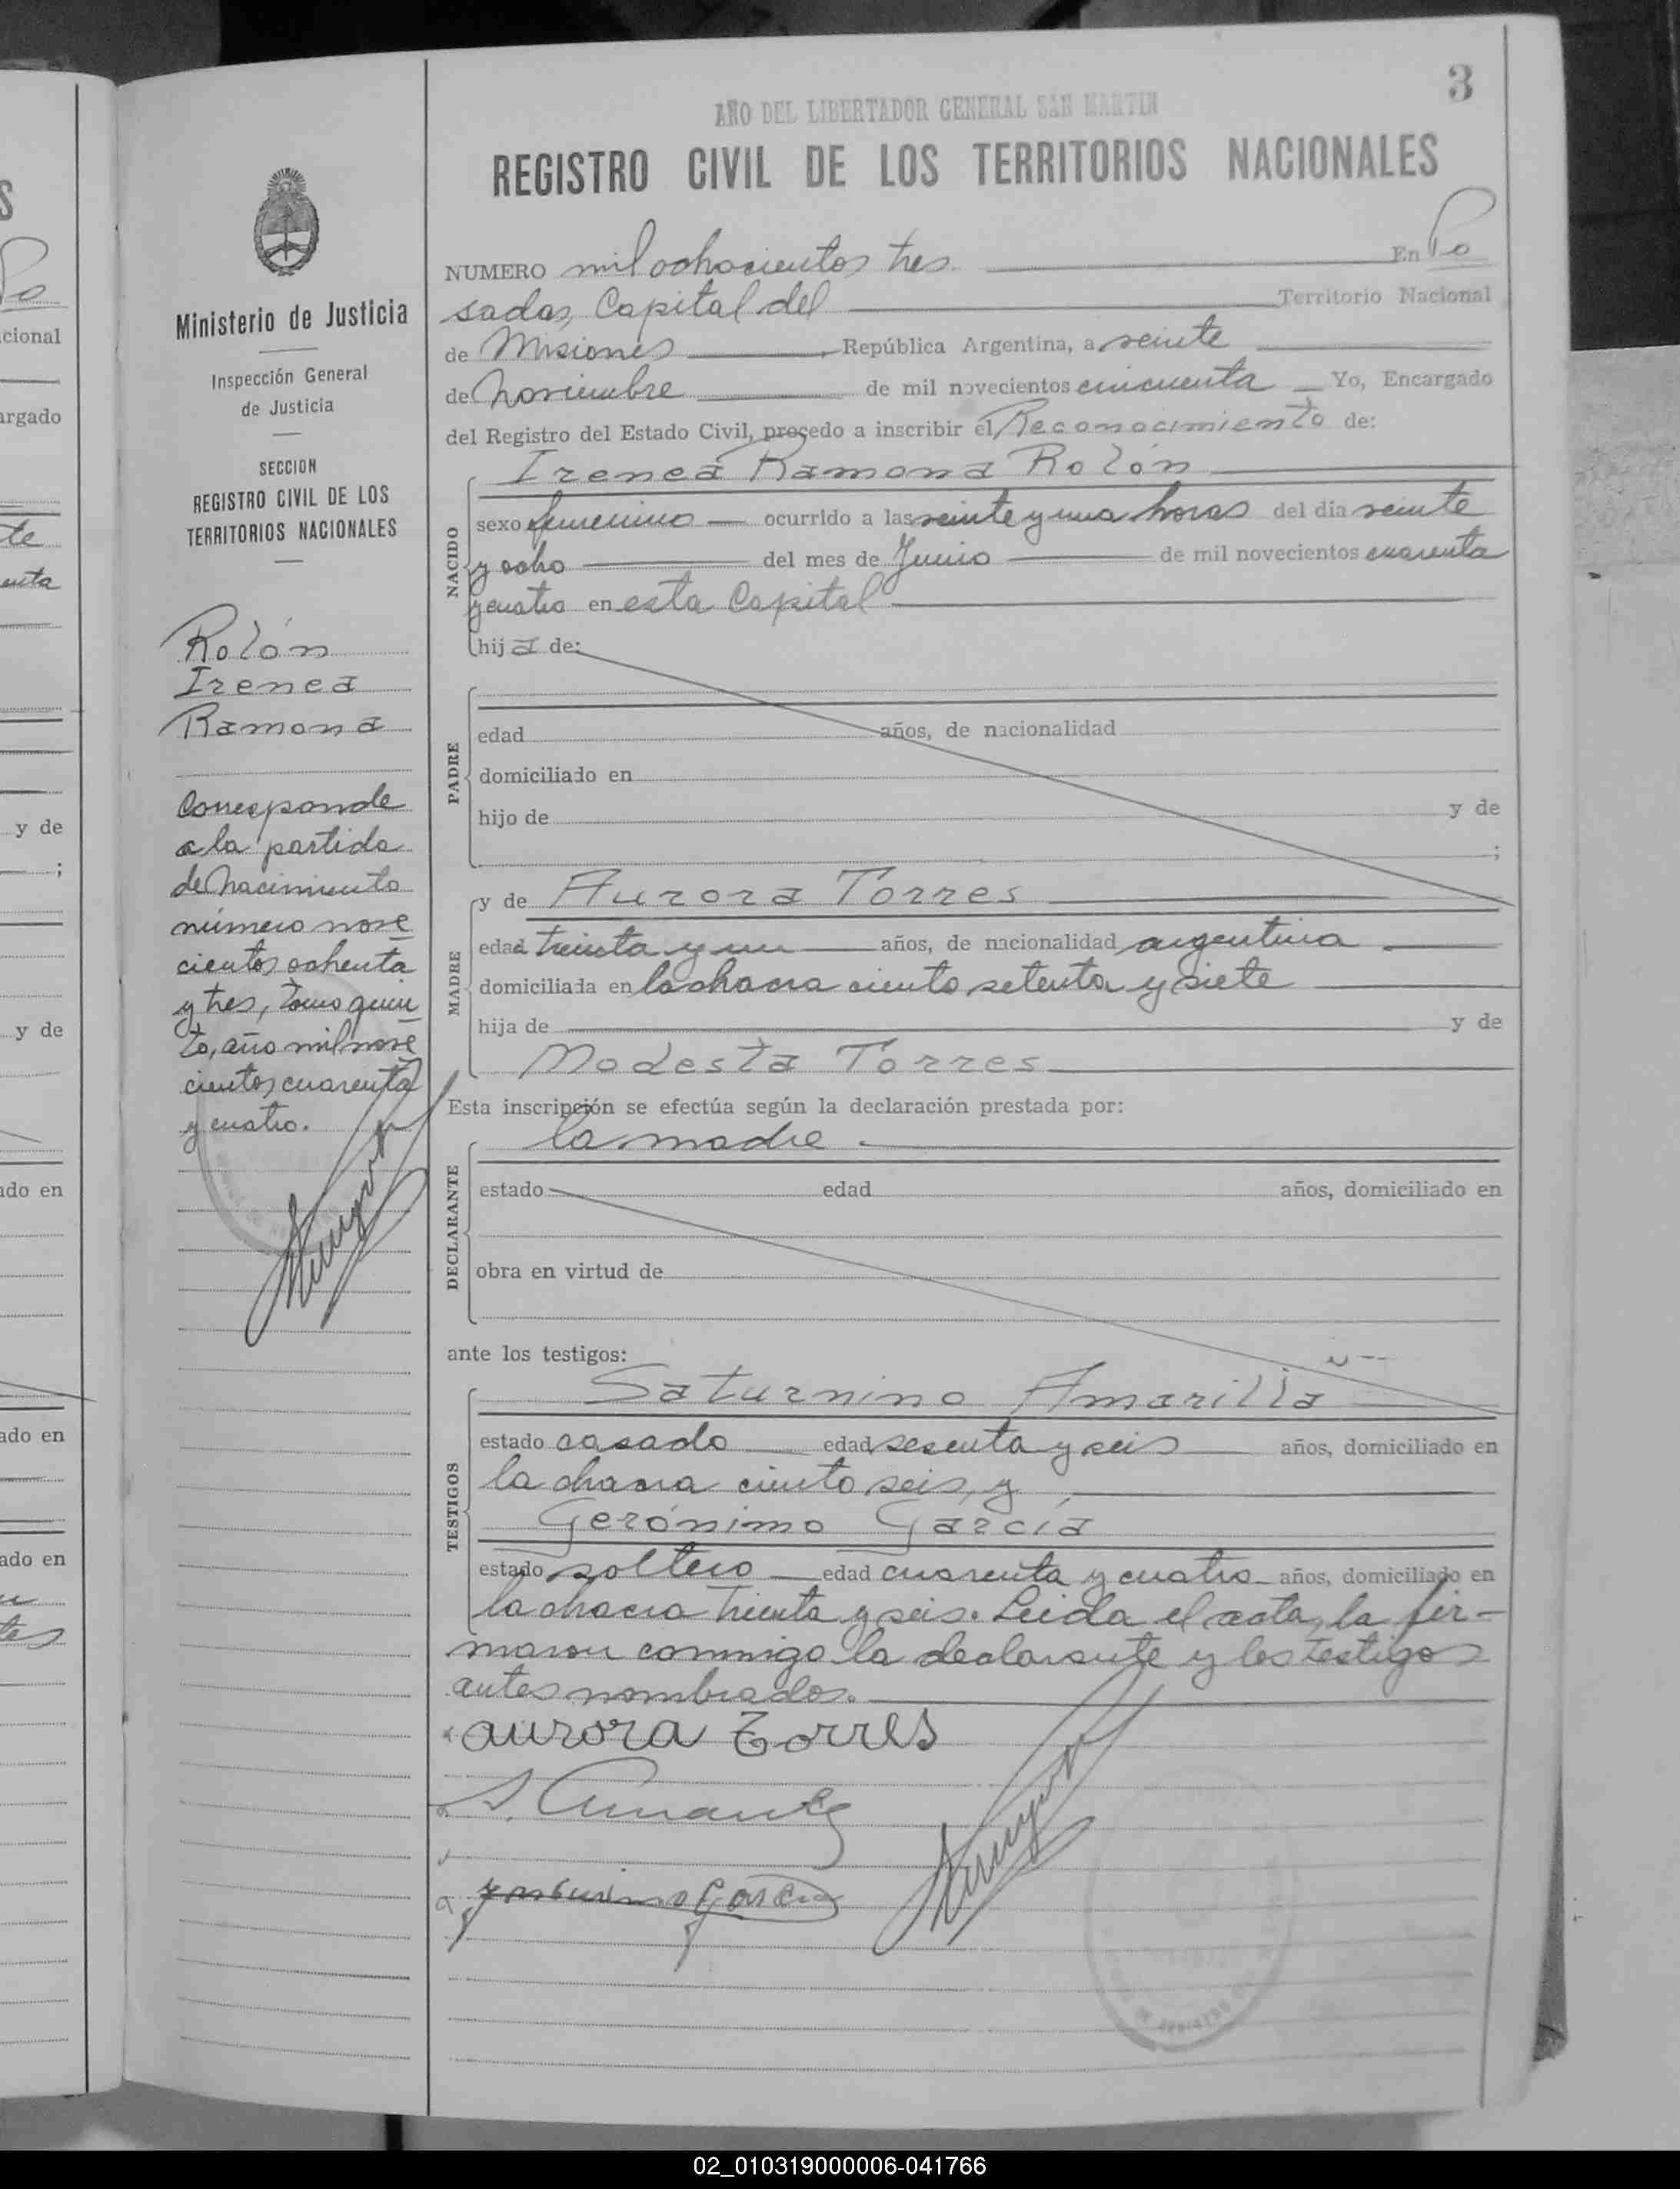 3
AÑO DEL LIBERTADOR GENERAL SAN MARTIN
REGISTRO CIVIL DE LOS TERRITORIOS NACIONALES
NUMERO mil ochocientos tres En Po
sadas, Capital del Territorio Nacional
de Misiones, República Argentina, a veinte
de Noviembre de mil novecientos cincuenta Yo, Encargado
del Registro del Estado Civil, procedo a inscribir el Reconocimiento de:
Irenea Ramona Rolón
NACIDO
sexo femenino ocurrido a las veinte y una horas del dia veinte
y ocho del mes de Junio de mil novecientos cuarenta
y cuatro en esta Capital
hija de:
PADRE
edad años, de nacionalidad
domiciliado en
hijo de y de
;
MADRE
y de Aurora Torres
edad treinta y un años, de nacionalidad argentina
domiciliada en la chacra ciento setenta y siete
hija de y de
Modesta Torres
Esta inscripción se efectúa según la declaración prestada por:
la madre.
DECLARANTE
estado edad años, domiciliado en
obra en virtud de
ante los testigos:
TESTIGOS
Saturnino Amarilla
estado casado edad sesenta y seis años, domiciliado en
la chacra ciento seis, y
Gerónimo García
estado soltero edad cuarenta y cuatro años, domiciliado en
la chacra treinta y seis. Leida el acta, la fir-
maron conmigo la declarante y los testigos
antes nombrados.
aurora Torres
Ministerio de Justicia
Inspección General
de Justicia
SECCION
REGISTRO CIVIL DE LOS
TERRITORIOS NACIONALES
Rolón
Irenea
Ramona
Corresponde
a la partida
de Nacimiento
número nove
cientos ochenta
y tres, tomo quin
to, año mil nove
cientos cuarenta
y cuatro.
S
Po
cional
argado
te
enta
y de
;
y de
ado en
ado en
ado en
tes
02_010319000006-041766